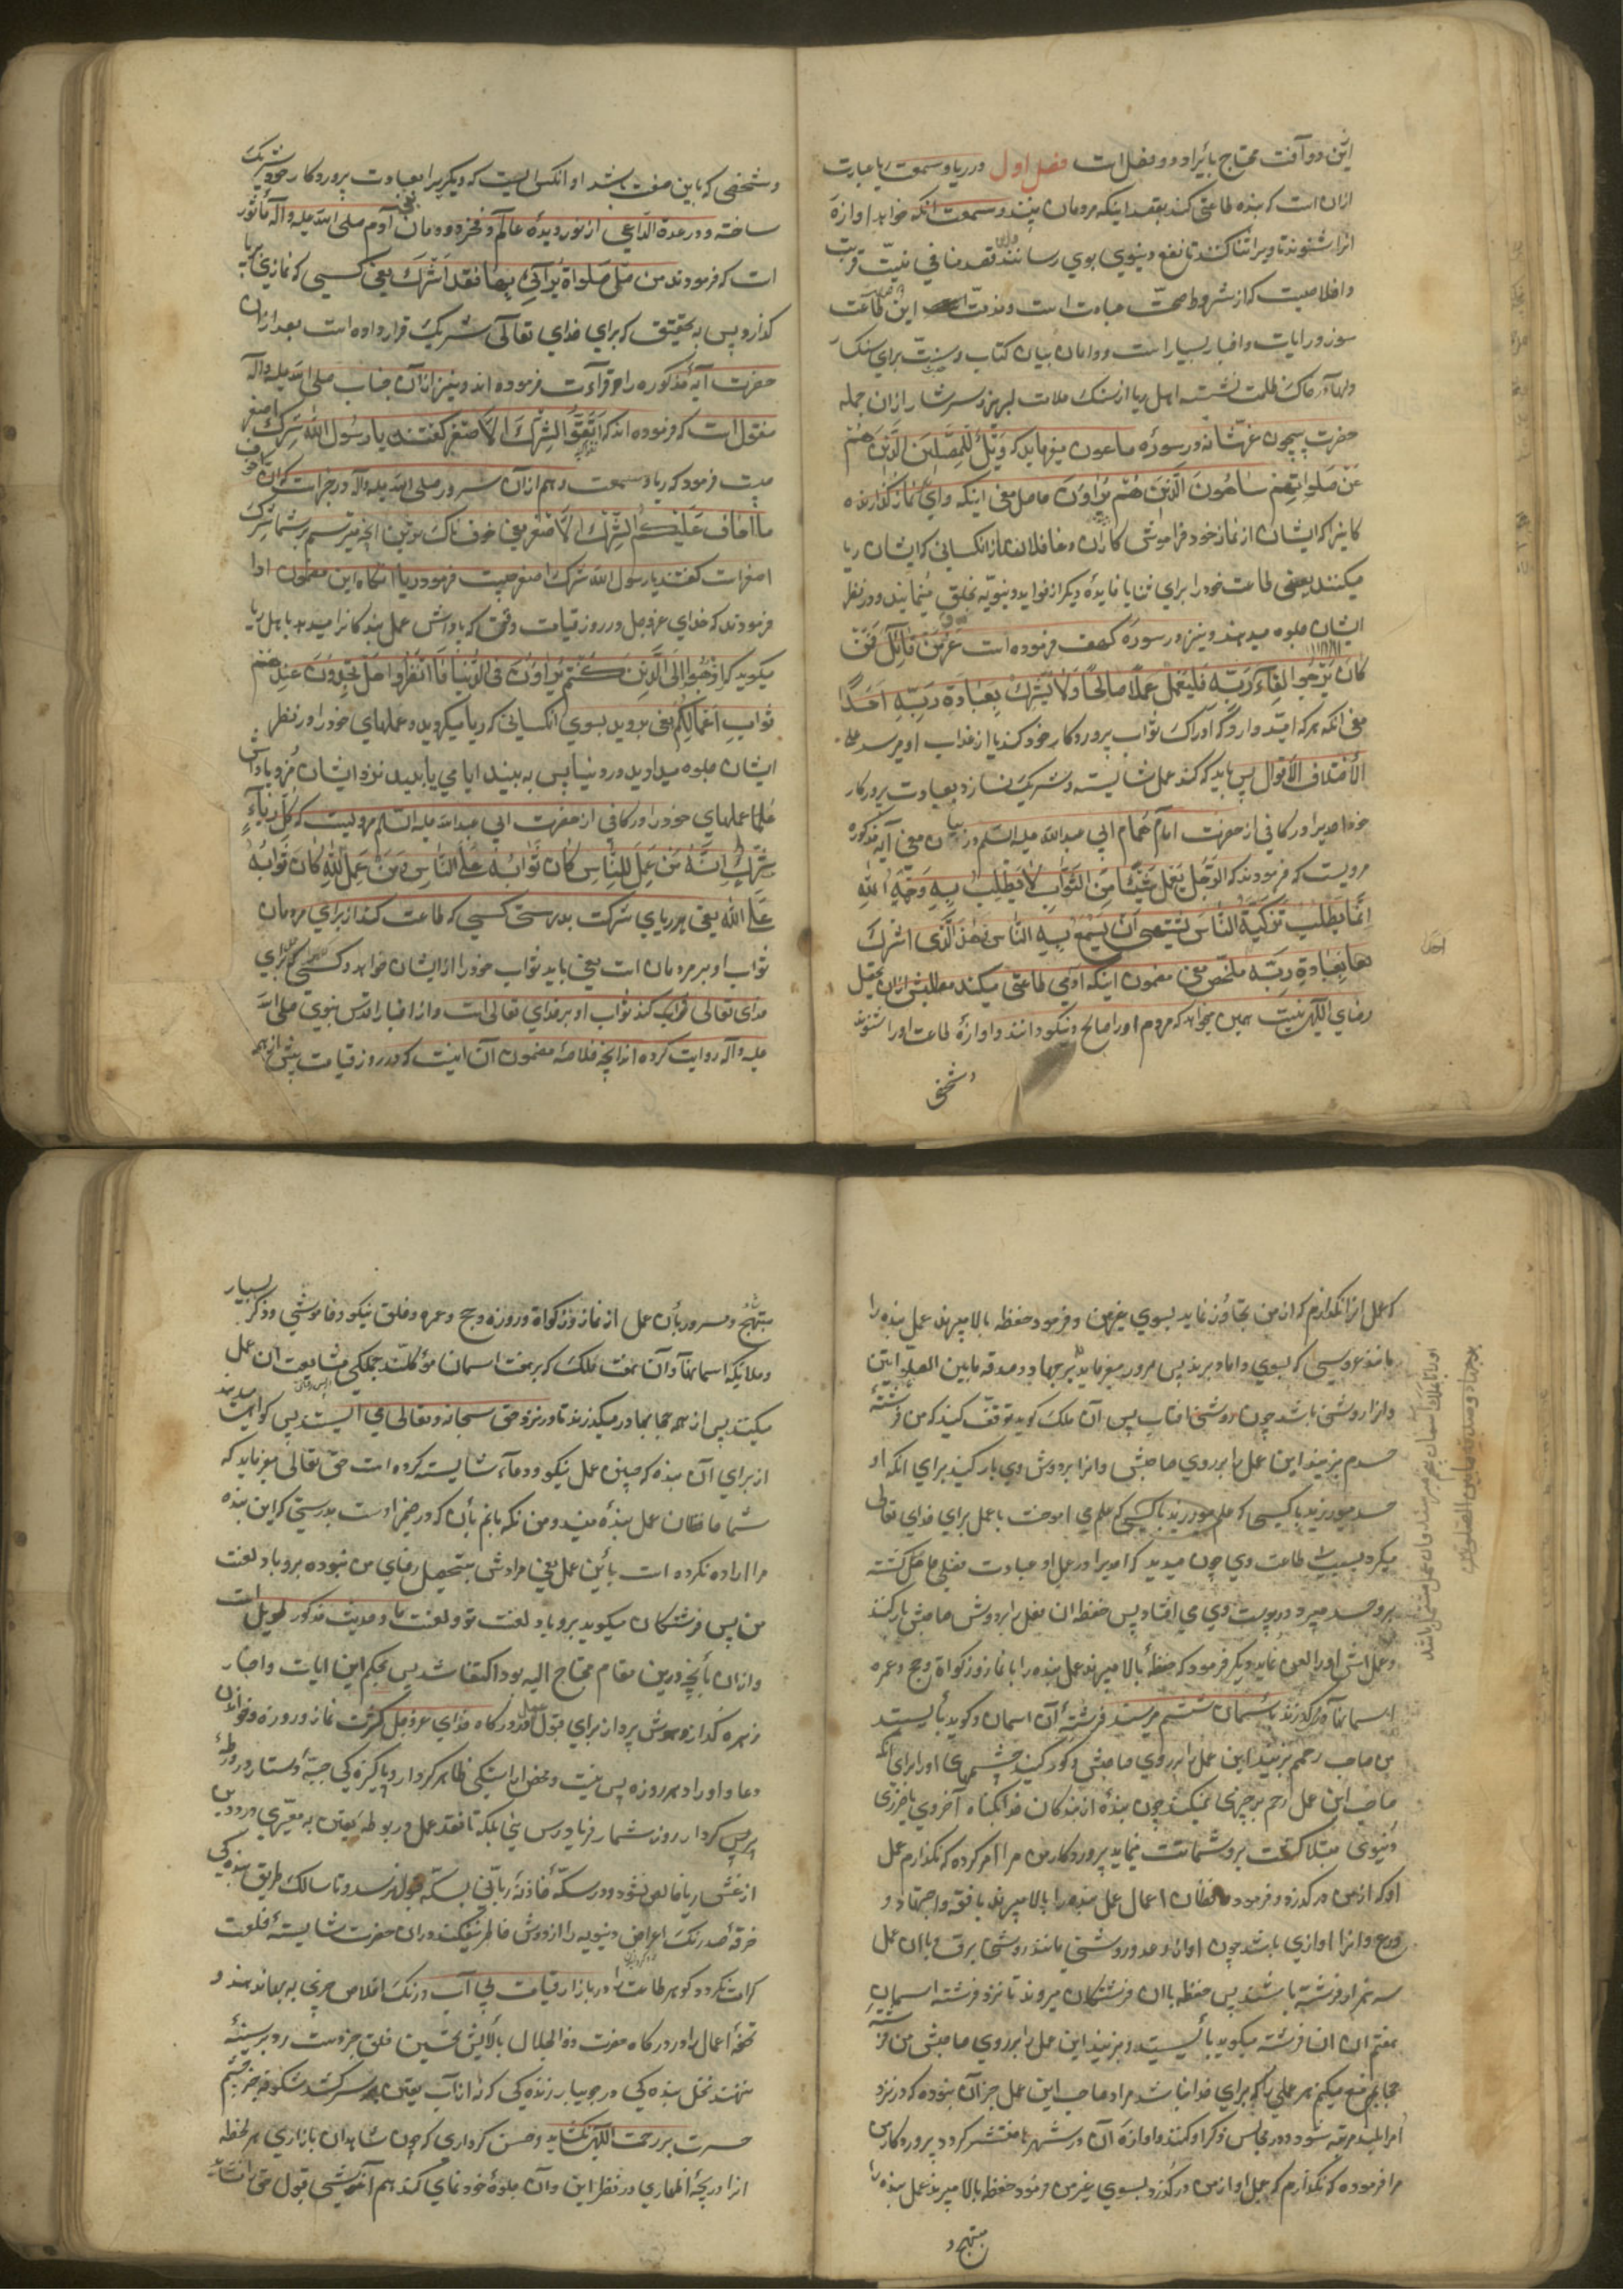 این دو آفت محتاج بایراد دو فصل است فصل اول در ریا و سمعت ریا عبارت
ازان است که بنده طاعتی کند بقصد اینکه مردمان بینند و سمعت آنکه خواهد اوازهٔ
انرا شنوند تا ویرا ثنا کنند تا نفع دنیوی بوی رسانند قصد منافی نیّت قربت
و اخلاصیت که از شروط صحّت عبادت است و مذمّت این طاعت
سوز در ایات و اخبار بسیار است و دامان بیان کتاب و سنت برای سنکسار
اهل ریا از سنک ملامت لبریز و سرشار ازان جمله
حضرت بیچون عزّ شانه در سوره ماعون میفرماید که وَیْلٌ لِلْمُصَلّینَ الَّذینَ هُمْ
عَنْ صَلَواتِهِمْ ساهُونَ الَّذینَ هُمْ یُراؤُنَ حاصل معنی اینکه وای نماز کذارنده
کانیرا که ایشان از نماز خود فراموشی کاران و غافلانند از انکسانی که ایشان ریا
میکنند یعنی طاعت خود را برای ثنا یا فایدهٔ دیکر از فواید دنیویّه بخلق مینمایند و در نظر
ایشان جلوه میدهند و نیز در سورهٔ کهف فرموده است عَزَّ مِن قائِل فَمَن
کانَ یَرْجُوا لِقآءَ رَبِّه فَلْیَعْمَلْ عَمَلًا صالِحًا وَلا یُشْرِكْ بِعِبادَةِ رَبِّهِ اَحَدًا
یعنی انکه هر که امید دارد که ادراک ثواب پروردکار خود کند یا از عذاب او میترسد علی
الاختلاف الاقوال پس باید که کند عمل شایسته و شریک نسازد بعبادت پروردکار
خود احدیرا در کافی از حضرت امام همام ابی عبدالله علیه السّلم در بیان معنی آیه مذکوره
مرویست که فرمودند که الرَّجُل یَعْمَل شَیْئًا مِنَ الثَّوابِ لا یَطْلُبُ بِهِ وَجْهَ اللّٰهِ
اِنَّما یَطْلُبُ تَزْکِیَةَ النّاسِ یَشْتَهی اَنْ یَسْمَعَ بِهِ النّاسُ فَهٰذَ الَّذی اَشْرَكَ
بِعِبادَةِ رَبِّه ملخّص معنی مضمون اینکه ادمی طاعتی میکند مطلبش ازان تحصیل
رضای الهی نیست همین میخواهد که مردم او را صالح و نیکو دانند و اوازهٔ طاعت او را شنوند
و شخصی
و شخصی که باین صفت باشد او انکس است که دیکریرا بعبادت پروردکار خود شریک
ساخته و در عدة الدّاعی از نور دیدهٔ عالم و فخر دودمان آدم صلی الله علیه و آله مأثور
است که فرمودند من صَلّی صَلواةً یُرآئی بِها فَقَدْ اَشْرَكَ یعنی کسی که نمازی بریا
کذارد پس به تحقیق که برای خدای تعالی شریک قرار داده است بعد ازان
حضرت آیهٔ مذکوره را قرآءت فرموده اند و نیز ازان جناب صلی الله علیه و آله
منقول است که فرموده اند که اِتَّقُوا الشِّرْكَ الاَصْغَر کفتند یا رَسُولَ اللّٰه شِرْك اصغر
چیست فرمود که ریا و سمعت و هم ازان سرور صلی الله علیه و آله در خبر است که اِنَّ اَخْوَفَ
ما اَخافُ عَلَیْکُم الشِّرْكُ الاَصْغَر یعنی خوف ناک ترین انچه میترسم بر شما شرک
اصغر است کفتند یا رسول الله شرک اصغر چیست فرمود ریا انکاه این مضمون ادا
فرمودند که خدای عزّ و جل در روز قیامت وقتی که پاداش عمل بندکانرا میدهد باهل ریا
میکوید که اذْهَبُوا اِلَی الَّذینَ کُنْتُم تُراؤُنَ فِی الدُّنْیا فَانْظُروا هَلْ تَجِدُونَ عِنْدَهُمْ
ثَوابَ اَعْمالِکُمْ یعنی بروید بسوی انکسانی که ریا میکردید و عملهای خود را در نظر
ایشان جلوه میدادید در دنیا پس به بینید ایا می یابید نزد ایشان مزد و پاداش
عملهای خود در کافی از حضرت ابی عبدالله علیه السّلم مرویست که کُلُّ رِیآءٍ
شِرْكٌ اِنَّهُ مَنْ عَمِلَ لِلنّاسِ کانَ ثَوابُهُ عَلَی النّاسِ وَ مَنْ عَمِلَ لِلّٰهِ کانَ ثَوابُهُ
عَلَی اللّٰه یعنی هر ریای شرکت بدرستی کسی که طاعت کند از برای مردمان
ثواب او بر مردمان است یعنی باید ثواب خود را از ایشان خواهد و کسی که برای
خدای تعالی کند ثواب او بر خدای تعالی است و از اخبار اقدس نبوی صلی الله
علیه و آله روایت کرده اند انچه خلاصهٔ مضمون آن اینست که در روز قیامت پیش از همه
که عمل انرا نکذارم که از من تجاوز نماید بسوی غیر من و فرمود حفظه بالا میبرند عمل بنده را
مانند عروسی که بسوی داماد برند پس مرور میفرماید بر جهاد و صدقه مابین الصلواتین
و انرا روشنی باشد چون روشنی افتاب پس آن ملک کوید توقّف کنید که من فرشتهٔ
حسدم بزنید این عمل را بر روی صاحبش و انرا بر دوش وی بار کنید برای انکه او
حسد میورزید با کسی که علم می اموخت یا عمل برای خدای تعالی
میکرد طاعت وی چون میدید که احدیرا در عمل او عبادت فضلی حاصل کشته
برو حسد میبرد و در پوست وی می افتاد پس حفظه ان عمل را بر دوش صاحبش بار کنند
و عملش او را لعن نماید و دیکر فرمود که حفظه بالا میبرند عمل بنده را با نماز و زکواة و حج و عمره
از اسمانها در کذرند باسمان ششم میرسند فرشتهٔ آن اسمان و کوید بأیستید
من صاحب رحمم بزنید این عمل را بر روی صاحبش و کور کنید چشمهای او را برای انکه
صاحب این عمل رحم بر چیزی نمیکند چون بندهٔ از بندکان خدا بکناه آخروی یا ضرری
دنیوی مبتلا کشت برو شماتت مینماید پروردکار من مرا امر کرده که نکذارم عمل
او که از من در کذرد و فرمود حافظان اعمال عمل بنده را بالا میبرند با فقه و اجتهاد و
ورع و انرا اوازی باشد چون اواز رعد و روشنی مانند روشنی برق و با ان عمل
سه هزار فرشته باشند پس حفظه با ان فرشتکان میروند تا نزد فرشته اسمان
هفتم ان فرشته میکوید بأیستید و بزنید این عمل را بر روی صاحبش من فرشتهٔ
حجابم منع میکنم هر عملی را که برای خدا نباشد مراد صاحب این عمل جز آن نبوده که در نزد
امرا بلند مرتبه شود و در مجالس ذکر او کنند و اوازهٔ آن در شهرها منتشر کردد پروردکار من
مرا فرموده که نکذارم که عمل او از من در کذرد بسوی غیر من و فرمود حفظه بالا میبرند عمل بنده را
مبتهج و
مبتهج و مسرور بأن عمل از نماز و زکواة و روزه و حج و عمره و خلق نیکو و خاموشی و ذکر بسیار
و ملایکه اسمانها و آن هفت ملک که بر هفت اسمان مؤکلند جملکی مشایعت ان عمل
میکنند پس از همه حجابها در میکذرند تا در نزد حق سبحانه و تعالی می ایستند پس کواهی میدهند
از برای آن بنده که چنین عمل نیکو و دعآء شایسته کرده است حق تعالی میفرماید که
شما حافظان عمل بندهٔ منید و من نکهبانم بأن که در ضمیر اوست بدرستی که این بنده
مرا اراده نکرده است بأین عمل یعنی مرادش تحصیل رضای من نبوده برو باد لعنت
من پس فرشتکان میکویند برو باد لعنت تو و لعنت ما و حدیث مذکور طویل است
و ازان بأنچه درین مقام محتاج الیه بود اکتفا شد پس بحکم این ایات و اخبار
زهره کداز و هوش پرداز برای قبول عمل در درکاه خدای عزّ و جل کثرت نماز و روزه و خواندن
دعا و اوراد هر روزه بس نیست و محض اراستکی ظاهر کردار و پاکیزه کی جبّه و دستار در ورطهٔ
پرسش کردار روز شمار فریادرس نی بلکه تا نقد عمل در بوطهٔ یقین
از غش ریا خالص نشود در سکّه خانهٔ ربّانی بسکّه قبول نرسد و تا سالک طریق بنده کی
خرقهٔ صد رنک اغراض دنیویه را از دوش خاطر نیفکند دران حضرت شایستهٔ خلعت
کرامت نکردد کوهر طاعت را در بازار قیامت بی آب و رنک اخلاص بها ندهند و
تحفهٔ اعمال را در درکاه حضرت ذوالجلال بألایش تحسین خلق جز دست رد بر سینهٔ
ننهند نخل بنده کی در جویبار زنده کی که نه از آب یقین سر کشد شکوفه جز چشم
حسرت بر رحمت الهی نکشاید و حسن کرداری که چون شاهدان بازاری هر لحظه
از دریچهٔ اظهاری در نظر این و آن جلوهٔ خود نمای کند هم آغوشی قبول حق را نشاید